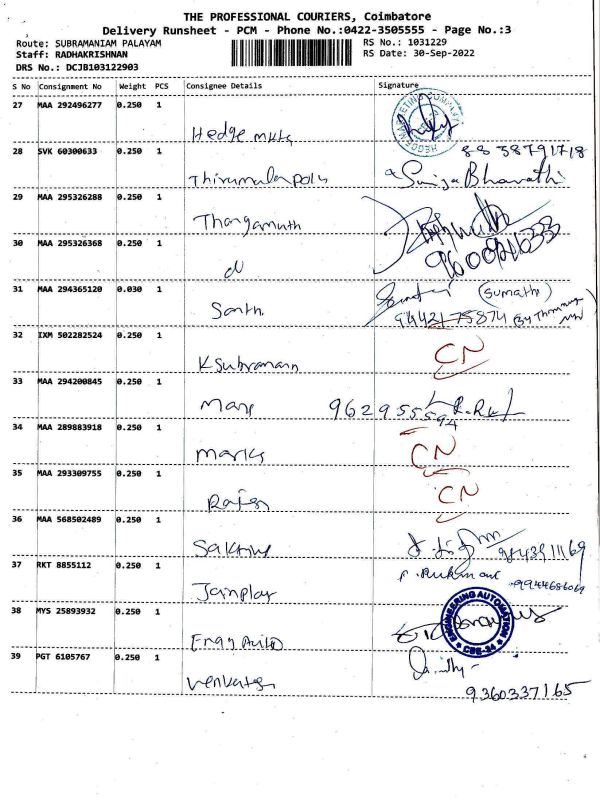 THE PROFESSIONAL COURIERS, Coimbatore
Delivery Runsheet - PCM - Phone No.:0422-3505555 - Page No.:3
Route: SUBRAMANIAM PALAYAM RS No.: 1031229
Staff: RADHAKRISHNAN RS Date: 30-Sep-2022
DRS No.: DCJB103122903
S No Consignment No Weight PCS Consignee Details Signature
27 MAA 292496277 0.250 1
Hedge mktg
8838791718
28 SVK 60300633 0.250 1
Thirumala poly
29 MAA 295326288 0.250 1
Thangamuth
30 MAA 295326368 0.250 1
31 MAA 294365120 0.030 1 (Sumathi)
Santh. 9442175874
32 IXM 502282524 0.250 1 CN
K Subramann
33 MAA 294200845 0.250 1
Mary 9629555594
34 MAA 289883918 0.250 1 CN
Marks
35 MAA 293309755 0.250 1 CN
Rajes
36 MAA 568502489 0.250 1
Sakthi
37 RKT 8855112 0.250 1
Jainplay
38 MYS 25893932 0.250 1 ENGINEERING AUTOMATION
Engg Auto CBE-34
39 PGT 6105767 0.250 1
Venkates 9360337165